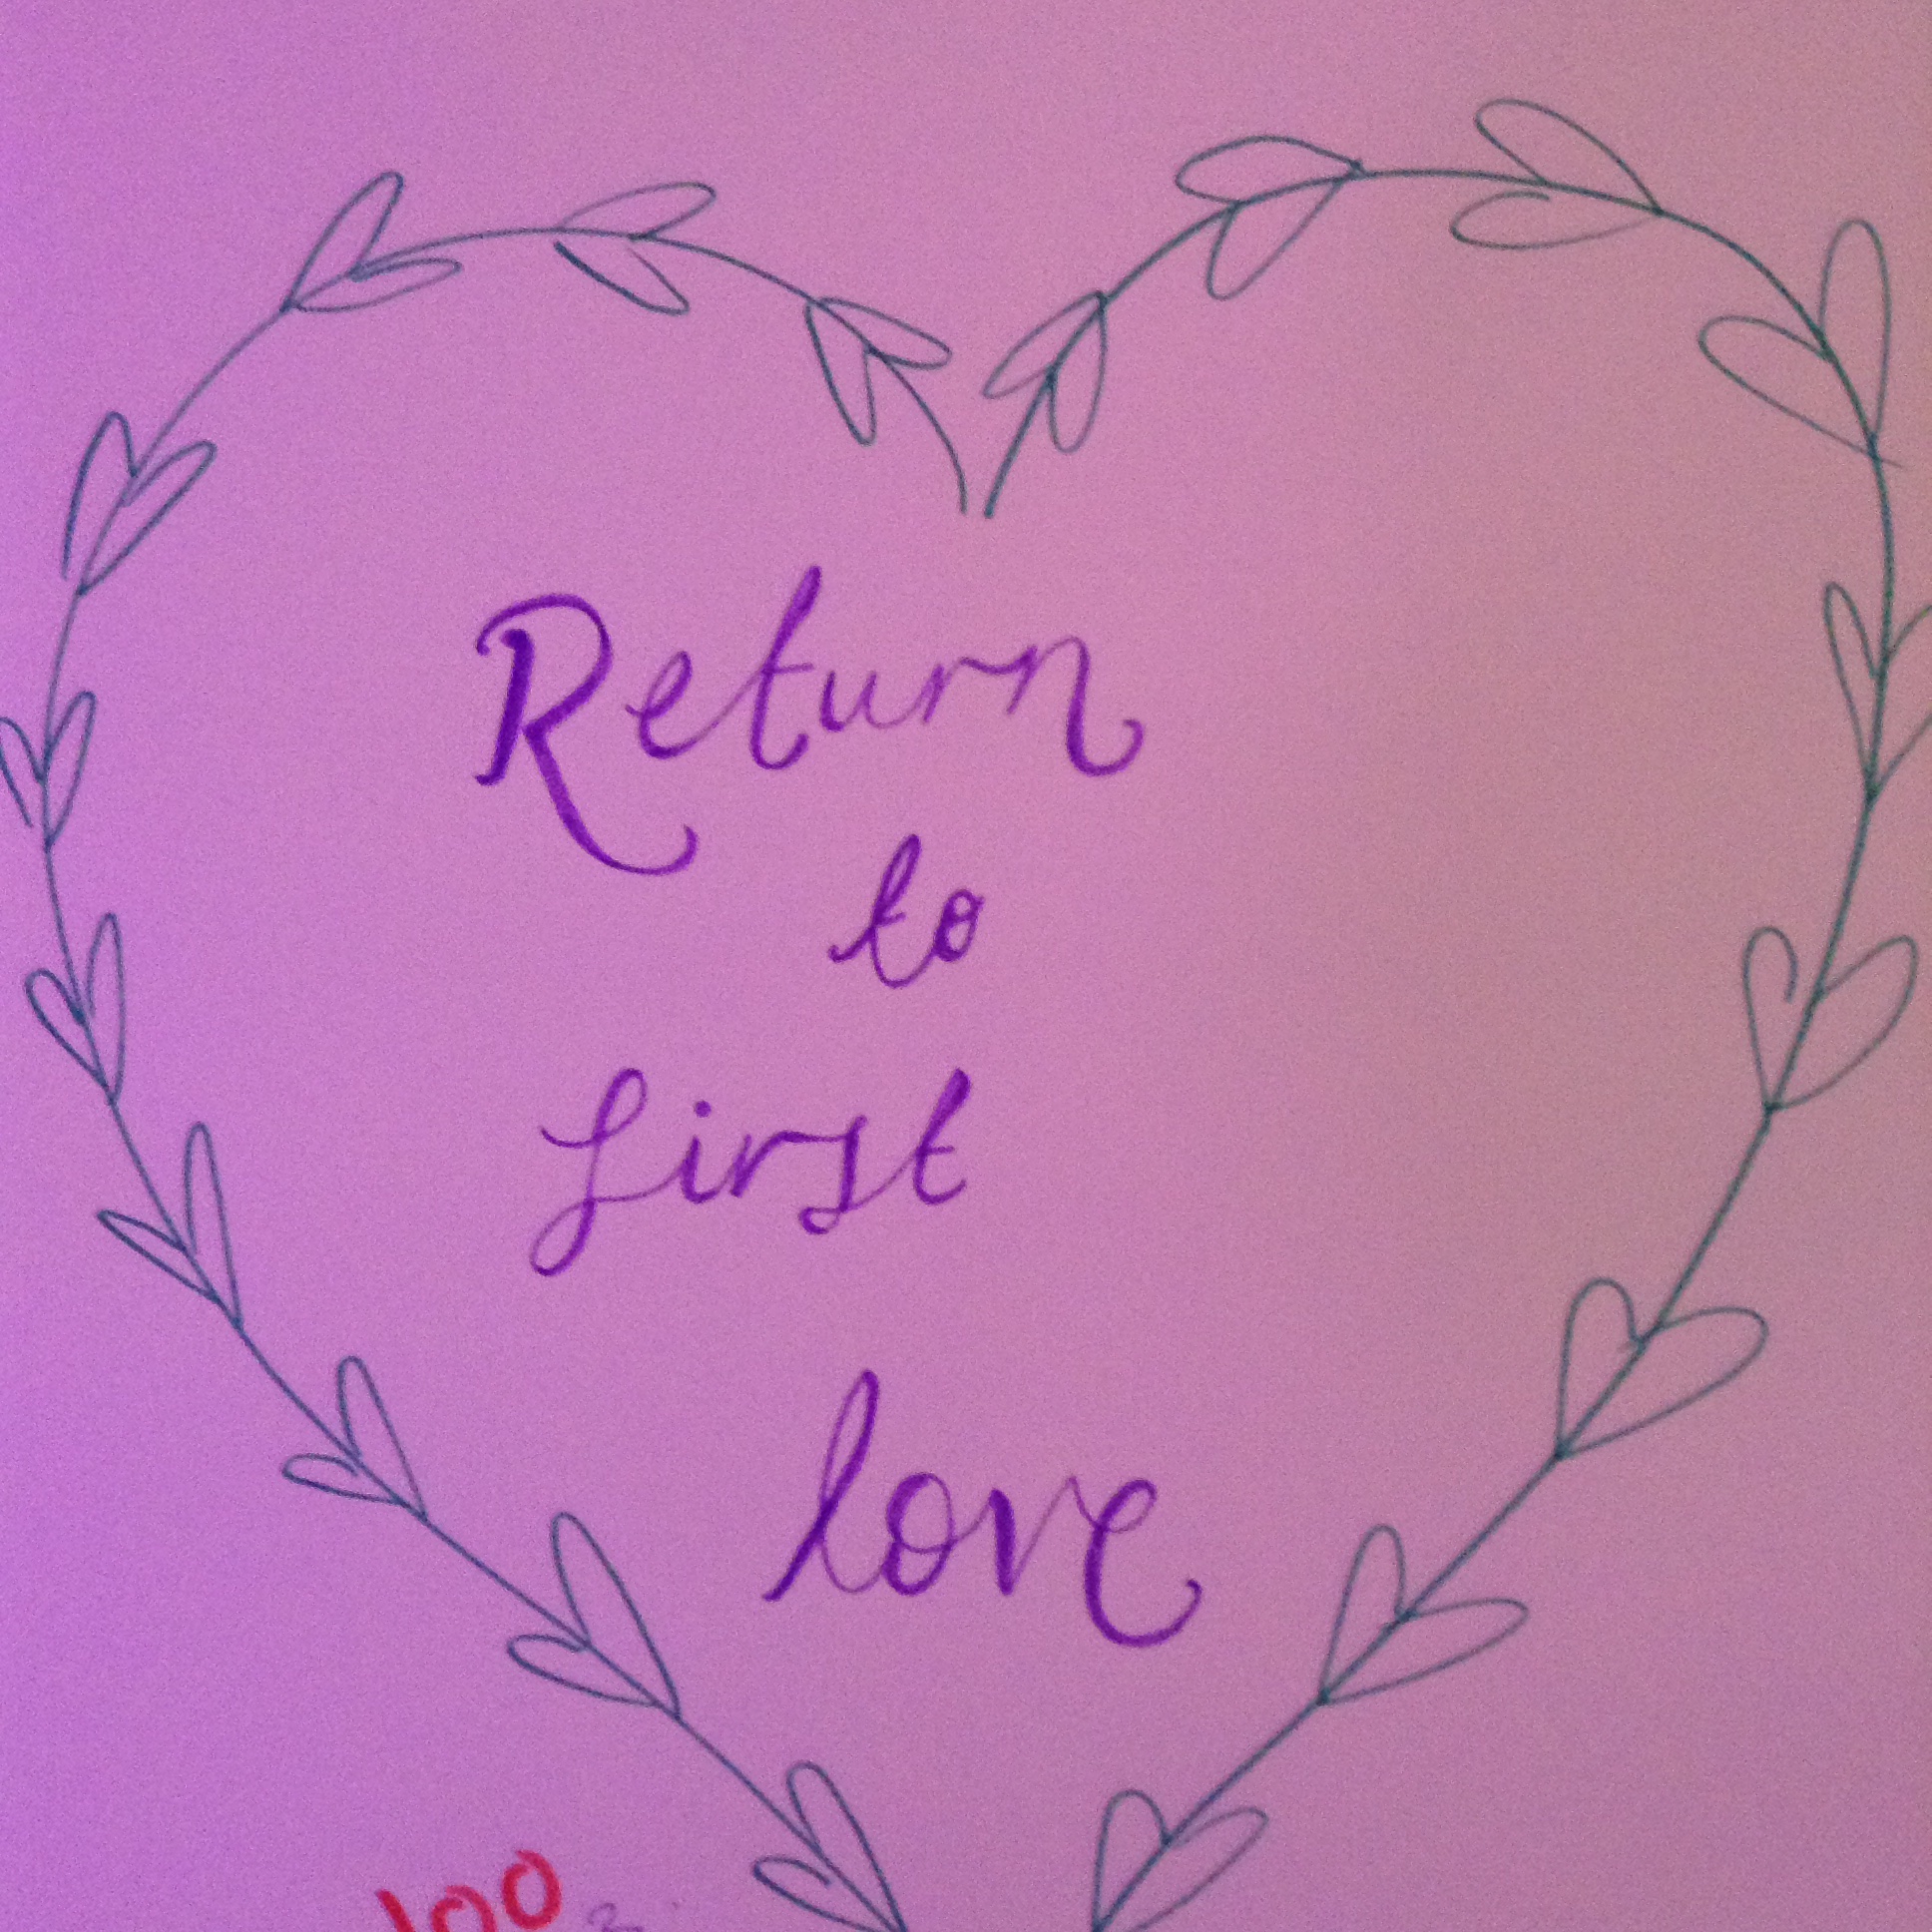 Return
to
first
love